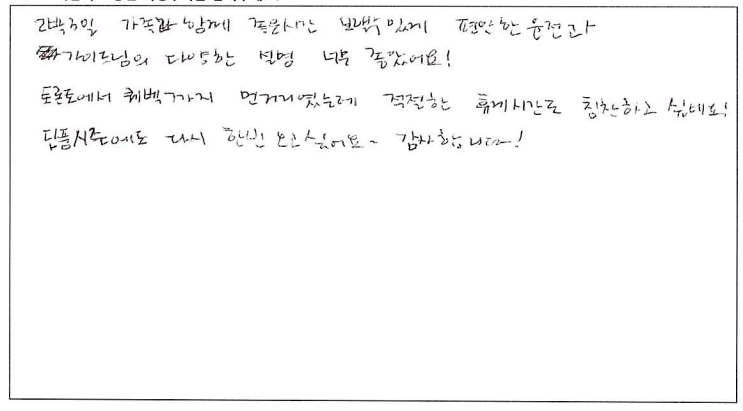 2박3일 가족과 함께 좋은시간 보낼수 있게 편안한 운전과
가이드님의 다양한 설명 너무 좋았어요!
토론토에서 퀘벡까지 먼거리였는데 적절한 휴게시간도 칭찬하고 싶네요!
단풍시즌에도 다시 한번 오고싶어요~ 감사합니다~!